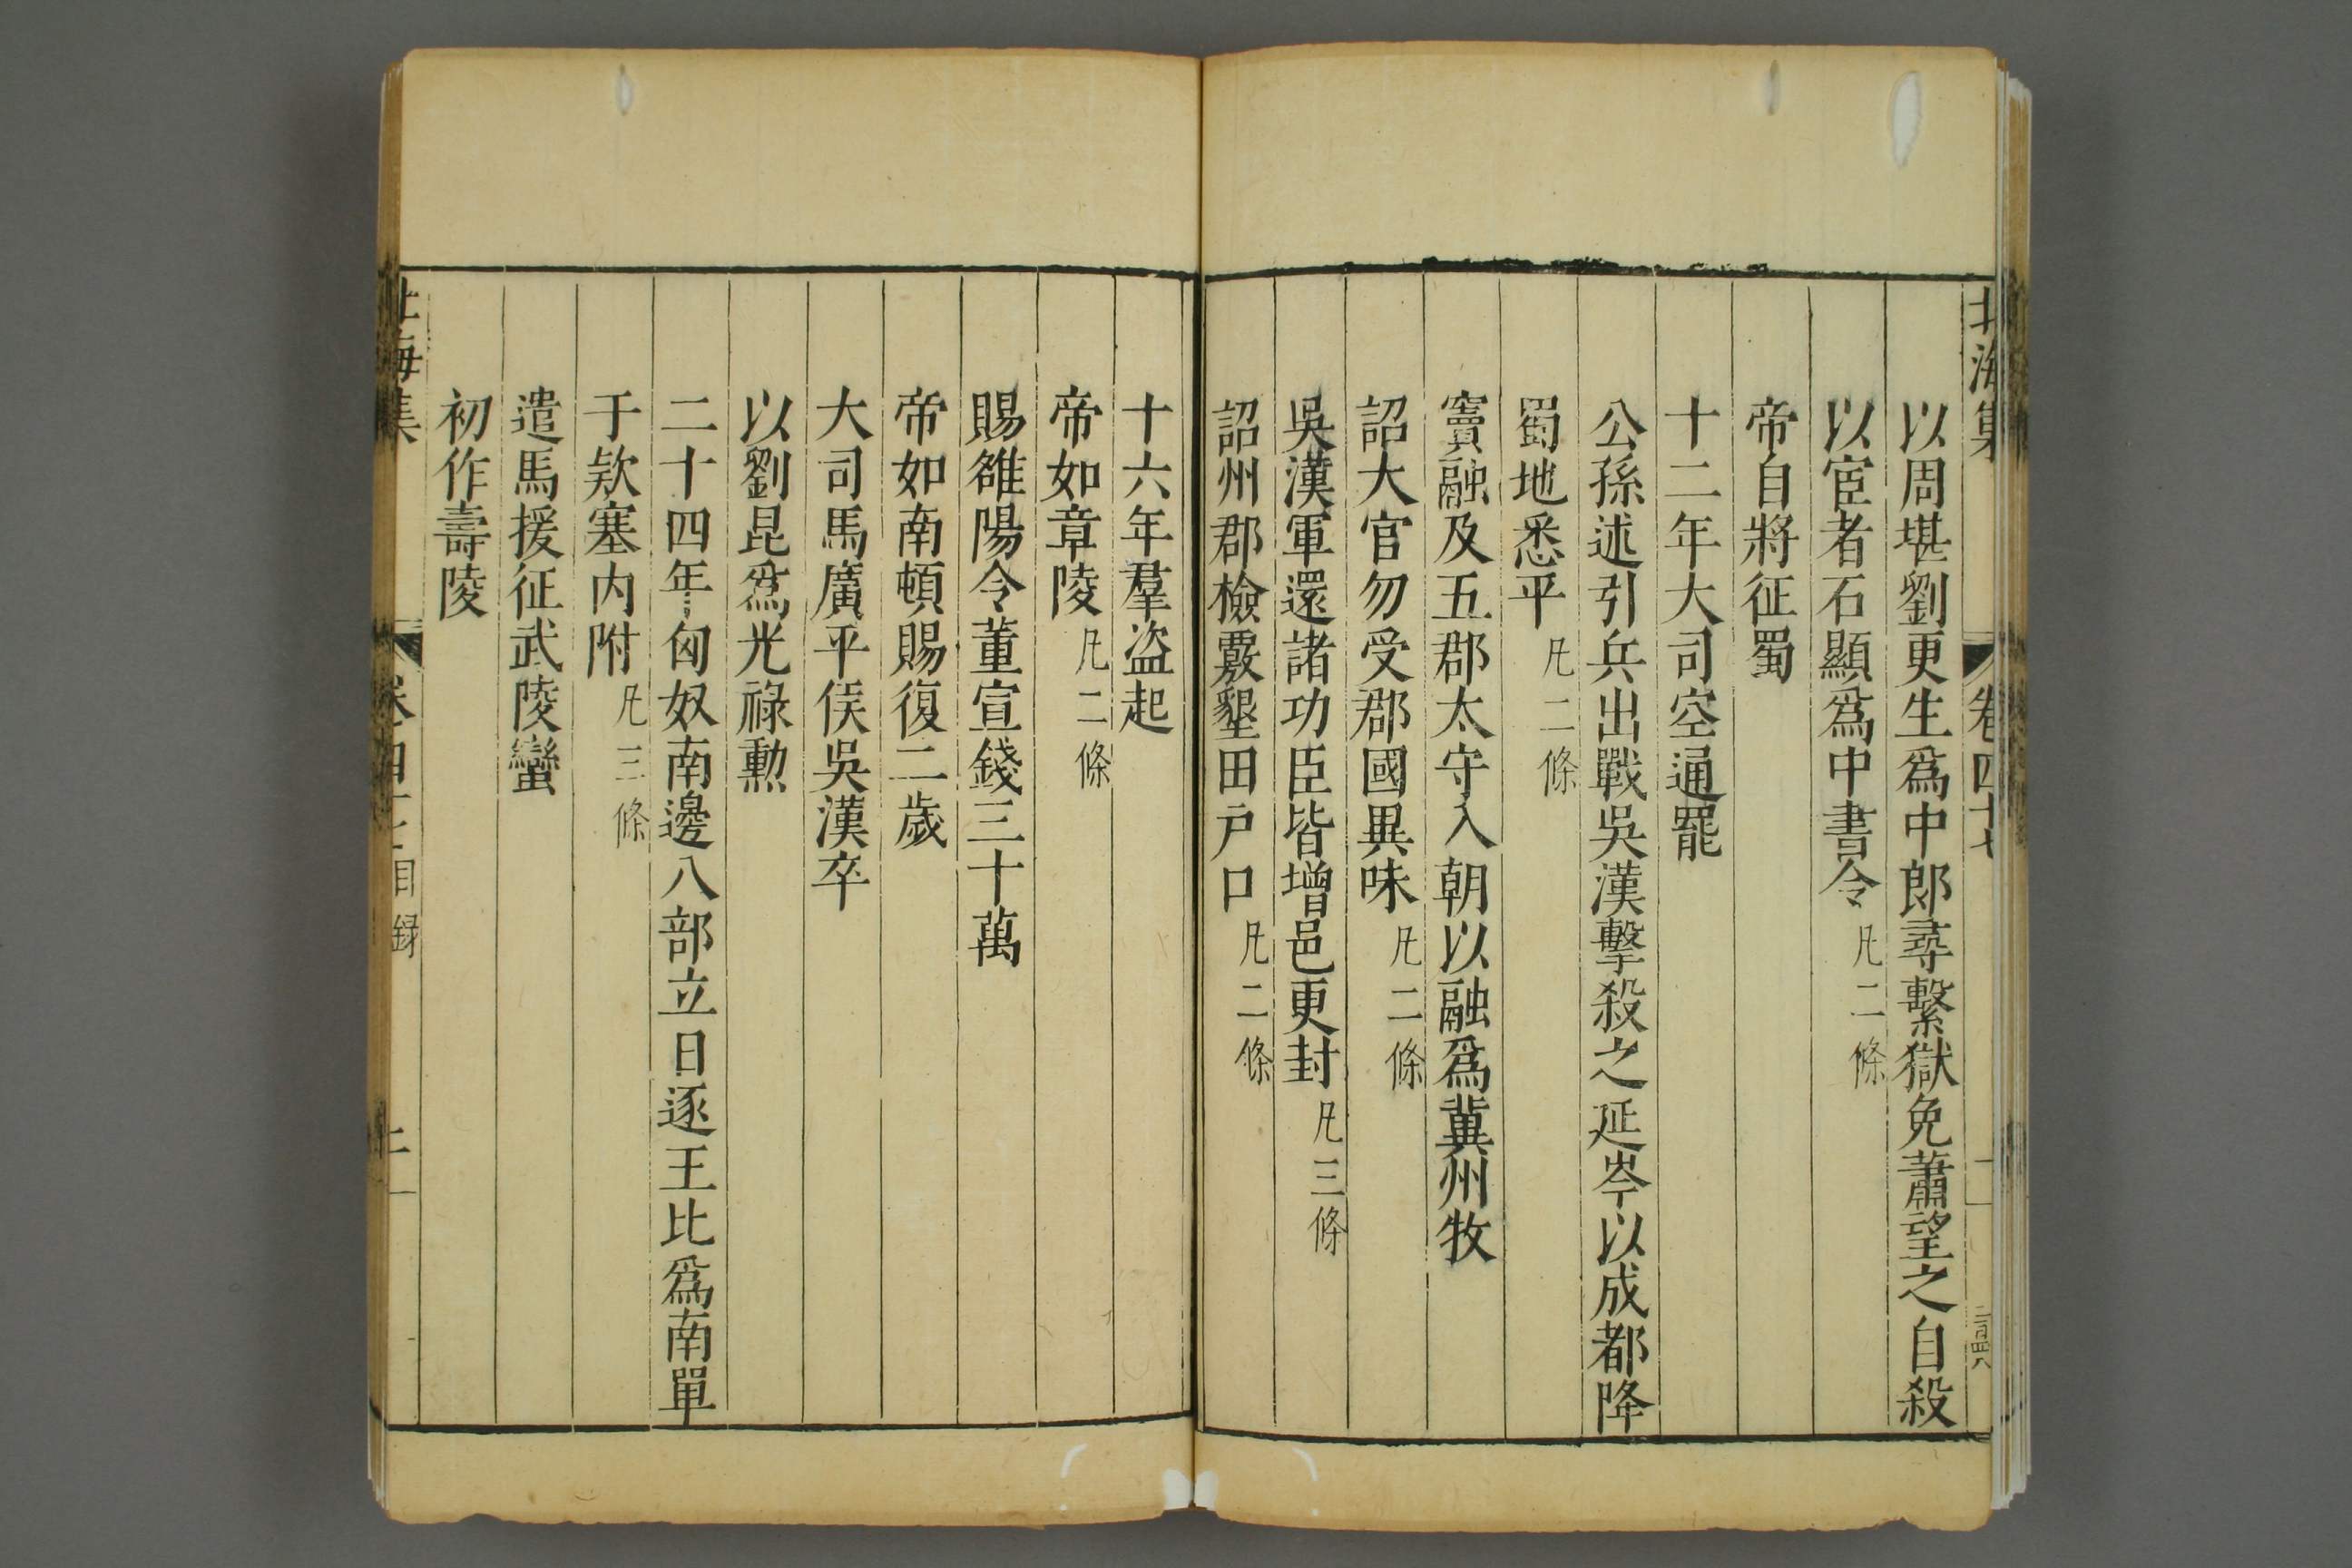 北海集 卷四十七
以周堪劉更生爲中郎尋繫獄免蕭望之自殺
以宦者石顯爲中書令 凡二條
帝自將征蜀
十二年大司空通罷
公孫述引兵出戰吳漢擊殺之延岑以成都降
蜀地悉平 凡二條
竇融及五郡太守入朝以融爲冀州牧
詔大官勿受郡國異味 凡二條
吳漢軍還諸功臣皆增邑更封 凡三條
詔州郡檢覈墾田戶口 凡二條
十六年羣盜起
帝如章陵 凡二條
賜雒陽令董宣錢三十萬
帝如南頓賜復二歲
大司馬廣平侯吳漢卒
以劉昆爲光祿勳
二十四年匈奴南邊八部立日逐王比爲南單
于欵塞內附 凡三條
遣馬援征武陵蠻
初作壽陵
北海集 卷四十七目録